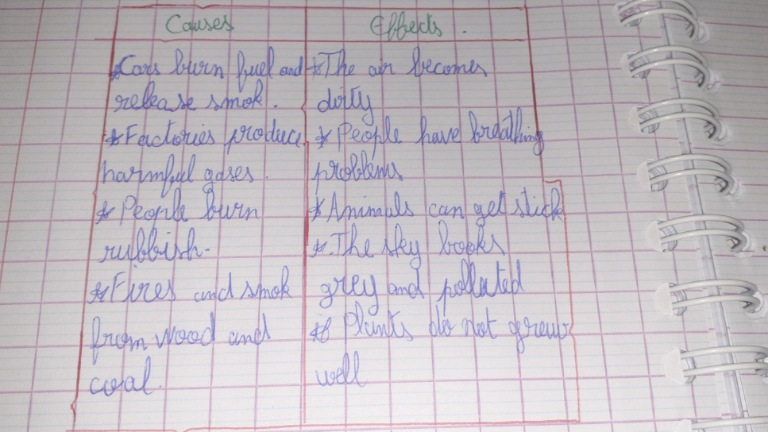 Causes
Effects.
*Cars burn fuel and
release smok.
*Factories produce
harmful gases.
*People burn
rubbish.
*Fires and smok
from wood and
coal.
*The air becomes
dirty
*People have breathing
problems
*Animals can get stick
*.The sky books
grey and polluted
* Plants do not grow
well